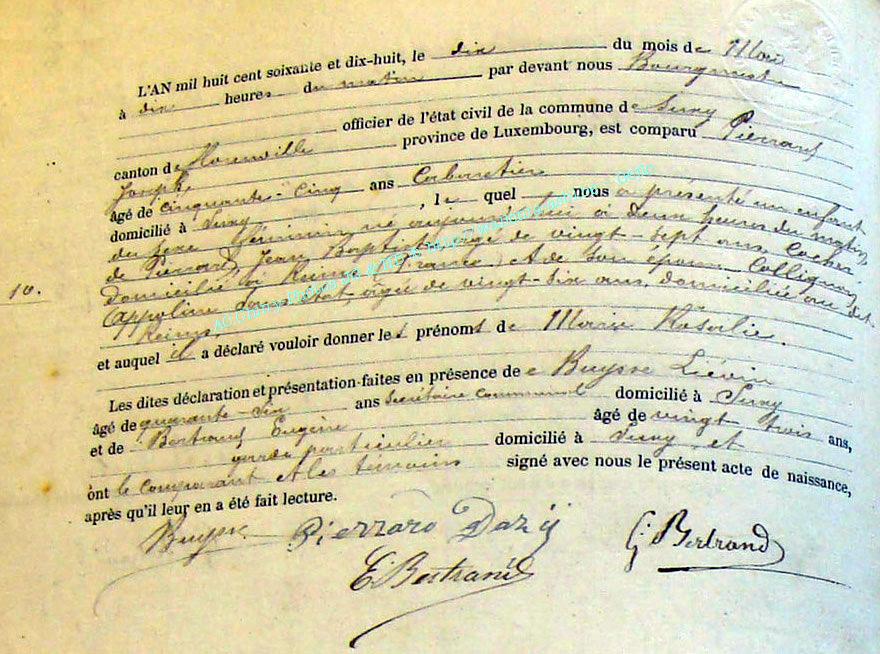 L'AN mil huit cent soixante et dix-huit, le dix du mois de Mai
à dix heures du matin par devant nous Bourgmestre
officier de l'état civil de la commune de Sugny
canton de province de Luxembourg, est comparu Pierrard
Joseph,
âgé de cinquante-cinq ans Cabaretier
domicilié à Sugny, lequel nous a présenté un enfant
du sexe féminin, né aujourd'hui à deux heures du matin,
de Pierrard, Jean Baptiste, âgé de vingt-sept ans, Cocher
10. domicilié à Reims (France) et de son épouse Collignon,
Appoline, sans état, âgée de vingt-six ans, domiciliée au dit
Reims,
et auquel il a déclaré vouloir donner les prénoms de Marie Rosalie.
Les dites déclaration et présentation faites en présence de Buysse Liévin
âgé de quarante-six ans Secrétaire communal domicilié à Sugny
et de Bertrand Eugène âgé de vingt trois ans,
garde particulier domicilié à Sugny et
ont le comparant et les témoins signé avec nous le présent acte de naissance,
après qu'il leur en a été fait lecture.
Buysse Pierrard G Bertrand
E Bertrand